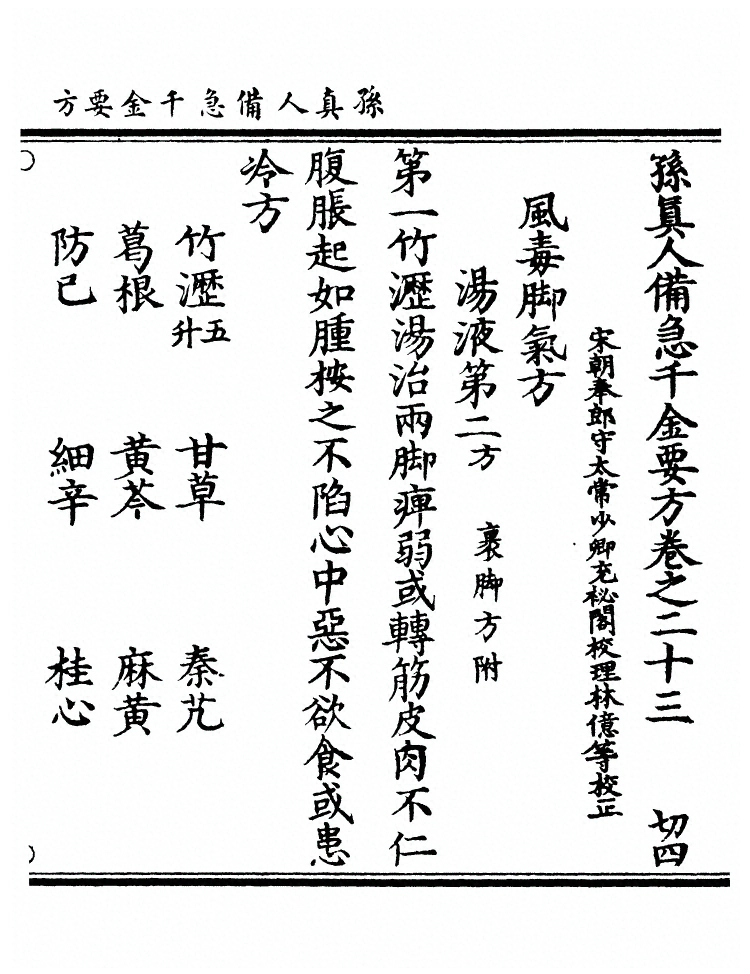 孫真人備急千金要方
孫眞人備急千金要方卷之二十三 切四
宋朝奉郎守太常少卿充祕閣校理林億等校正
風毒脚氣方
湯液第二方 裹脚方附
第一竹瀝湯治兩脚痺弱或轉筋皮肉不仁
腹脹起如腫按之不陷心中惡不欲食或患
冷方
竹瀝五升 甘草 秦艽
葛根 黃芩 麻黃
防已 細辛 桂心